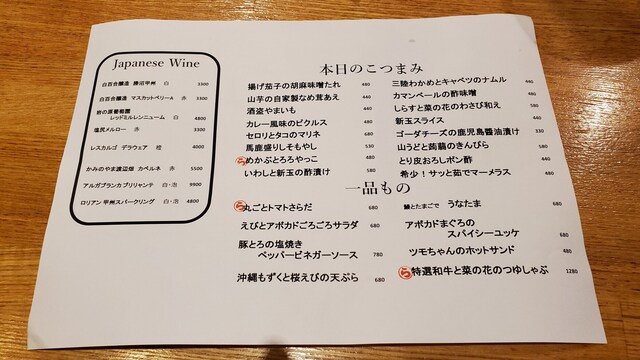 Japanese Wine
白百合醸造 勝沼甲州 白 3300
白百合醸造 マスカットベリーA 赤 3300
岩の原葡萄園
レッドミルレンニューム 白 4800
塩尻メルロー 赤 3300
レスカルゴ デラウェア 橙 4000
かみのやま渡辺畑 カベルネ 赤 5500
アルガブランカブリリャンテ 白・泡 9900
ロリアン甲州スパークリング 白・泡 4800
本日のこつまみ
揚げ茄子の胡麻味噌たれ 480
山芋の自家製なめ茸あえ 440
酒盗やまいも 440
カレー風味のピクルス 480
セロリとタコのマリネ 680
馬鹿盛りしそもやし 530
ら めかぶとろろやっこ 480
いわしと新玉の酢漬け 580
三陸わかめとキャベツのナムル 440
カマンベールの酢味噌 480
しらすと菜の花のわさび和え 580
新玉スライス 440
ゴーダチーズの鹿児島醤油漬け 330
山うどと蒟蒻のきんぴら 580
とり皮おろしポン酢 440
希少！サッと茹でマーメラス 480
一品もの
ら 丸ごとトマトさらだ 680
えびとアボカドごろごろサラダ 680
豚とろの塩焼き
ペッパービネガーソース 780
沖縄もずくと桜えびの天ぷら 680
鰻とたまごで うなたま 680
アボカドまぐろの
スパイシーユッケ 680
ツモちゃんのホットサンド 480
ら 特選和牛と菜の花のつゆしゃぶ 1280